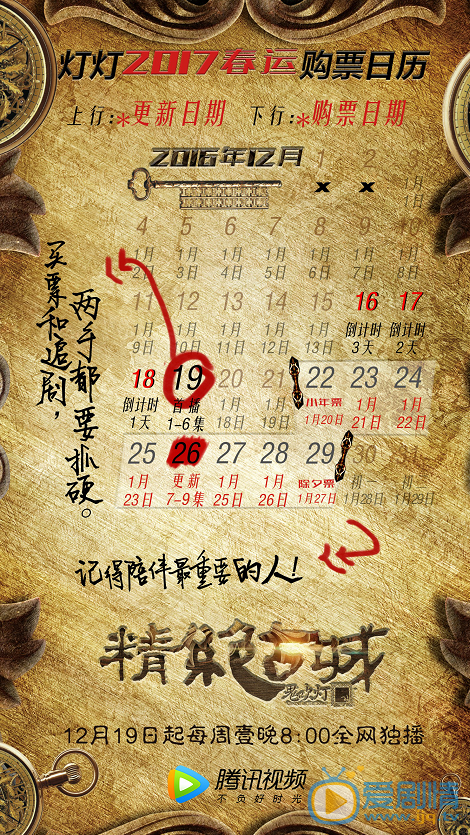 灯灯2017春运购票日历
上行:*更新日期 下行:*购票日期
2016年12月
1 2 3
x x 1月1日
4 5 6 7 8 9 10
1月2日 1月3日 1月4日 1月5日 1月6日 1月7日 1月8日
11 12 13 14 15 16 17
1月9日 1月10日 1月11日 1月12日 1月13日 倒计时3天 倒计时2天
18 19 20 21 22 23 24
倒计时1天 首播1-6集 1月18日 1月19日 小年票1月20日 1月21日 1月22日
25 26 27 28 29
1月23日 更新7-9集 1月25日 1月26日 除夕票1月27日 1月28日 1月29日
买票和追剧，
两手都要抓硬。
记得陪伴最重要的人！
精绝古城
鬼吹灯
12月19日起每周壹晚8:00全网独播
腾讯视频
不负好时光
爱剧情